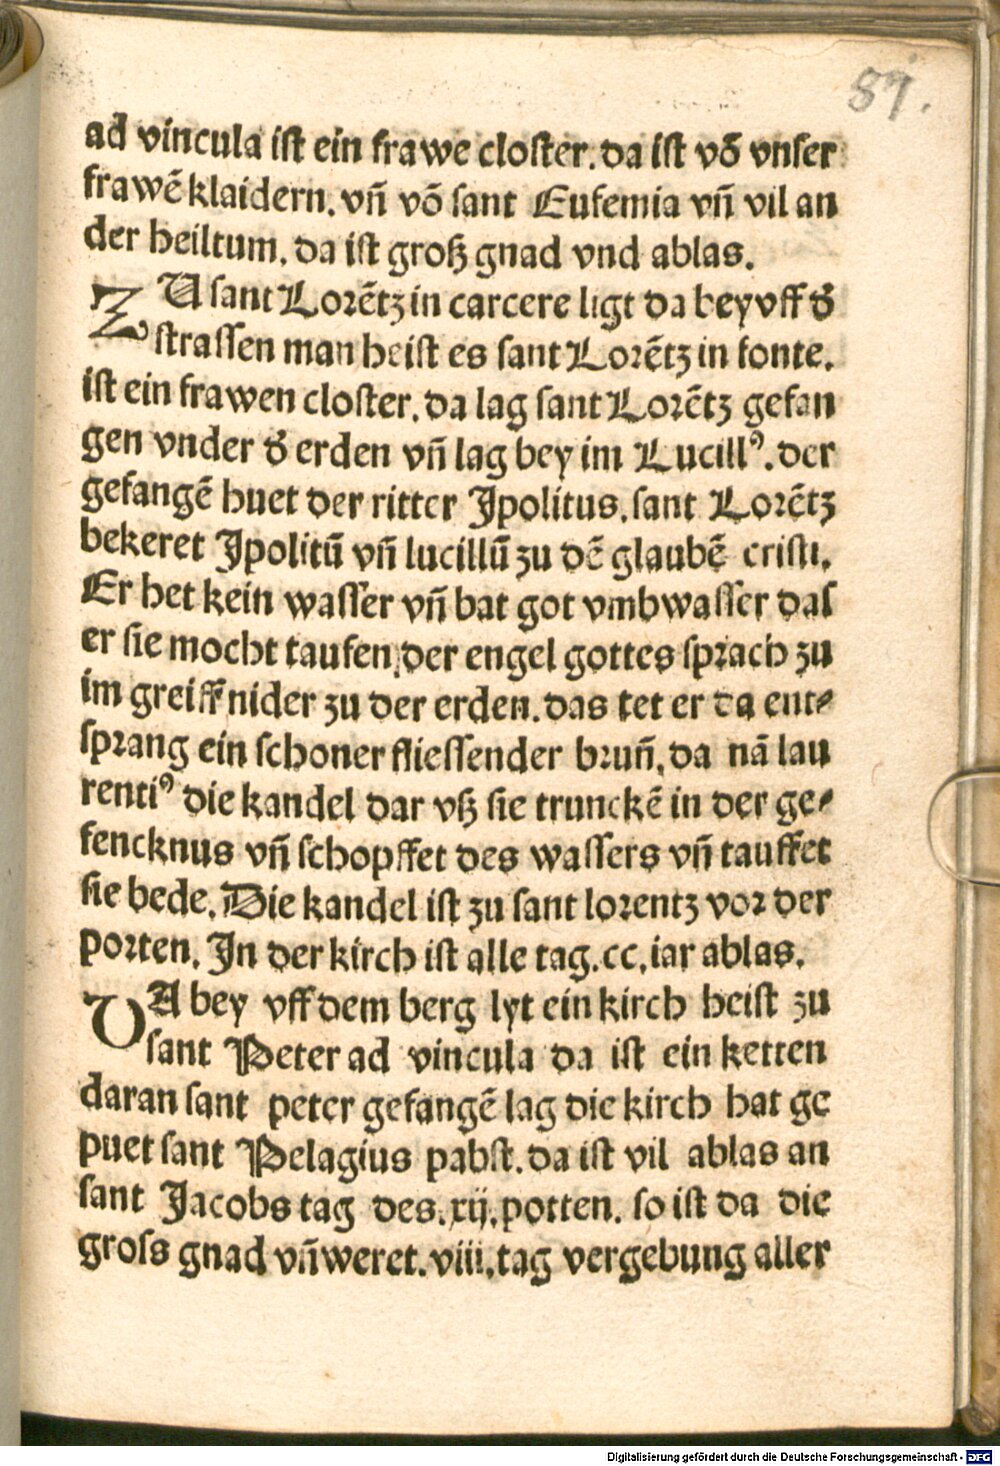 89.
ad vincula ist ein frawe closter. da ist võ vnser
frawẽ klaidern. vñ võ sant Eufemia vñ vil an
der heiltum. da ist groß gnad vnd ablas.
ZU sant Lorẽtz in carcere ligt da bey vff d̕
strassen man heist es sant Lorẽtz in fonte.
ist ein frawen closter. da lag sant Lorẽtz gefan
gen vnder d̕ erden vñ lag bey im Lucillꝰ. der
gefangẽ huet der ritter Jpolitus. sant Lorẽtz
bekeret Jpolitũ vñ lucillũ zu dẽ glaubẽ cristi.
Er het kein wasser vñ bat got vmb wasser das
er sie mocht taufen. der engel gottes sprach zu
im greiff nider zu der erden. das tet er da ent⸗
sprang ein schoner fliessender bruñ. da nã lau
rentiꝰ die kandel dar vß sie trunckẽ in der ge⸗
fencknus vñ schopffet des wassers vñ tauffet
sie bede. Die kandel ist zu sant lorentz vor der
porten. Jn der kirch ist alle tag. cc. iar ablas.
DA bey vff dem berg lyt ein kirch heist zu
sant Peter ad vincula da ist ein ketten
daran sant peter gefangẽ lag die kirch hat ge
puet sant Pelagius pabst. da ist vil ablas an
sant Jacobs tag des. xij. potten. so ist da die
gross gnad vñ weret. viii. tag vergebung aller
Digitalisierung gefördert durch die Deutsche Forschungsgemeinschaft - DFG